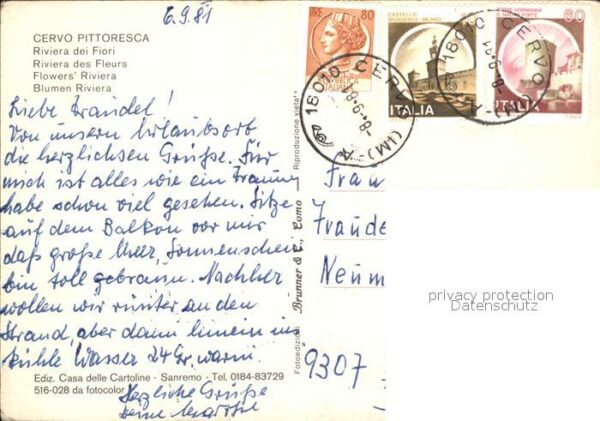 6.9.81
CERVO PITTORESCA
Riviera dei Fiori
Riviera des Fleurs
Flowers' Riviera
Blumen Riviera
Liebe Traudel!
Von unsern Urlaubsort
die herzlichsten Grüße. Für
mich ist alles wie ein Traum
habe schon viel gesehen. Sitze
auf dem Balkon vor mir
daß große Meer, Sonnenschein
bin toll gebräunt. Nachher
wollen wir runter an den
Strand, aber dann hinein ins
kühle Wasser 24 Gr. warm.
Herzliche Grüße
Deine
Ediz. Casa delle Cartoline - Sanremo - Tel. 0184-83729
516-028 da fotocolor
Fotoedizioni Brunner & C., Como Riproduzione vietata
80
CASTELLO
SFORZESCO - MILANO
ITALIA
60
ITALIA
18010 CERVO (IM) - A
8-9-81
18010 CERVO (IM) - A
8-9-81
Frau
Traude
Neum
9307
privacy protection
Datenschutz